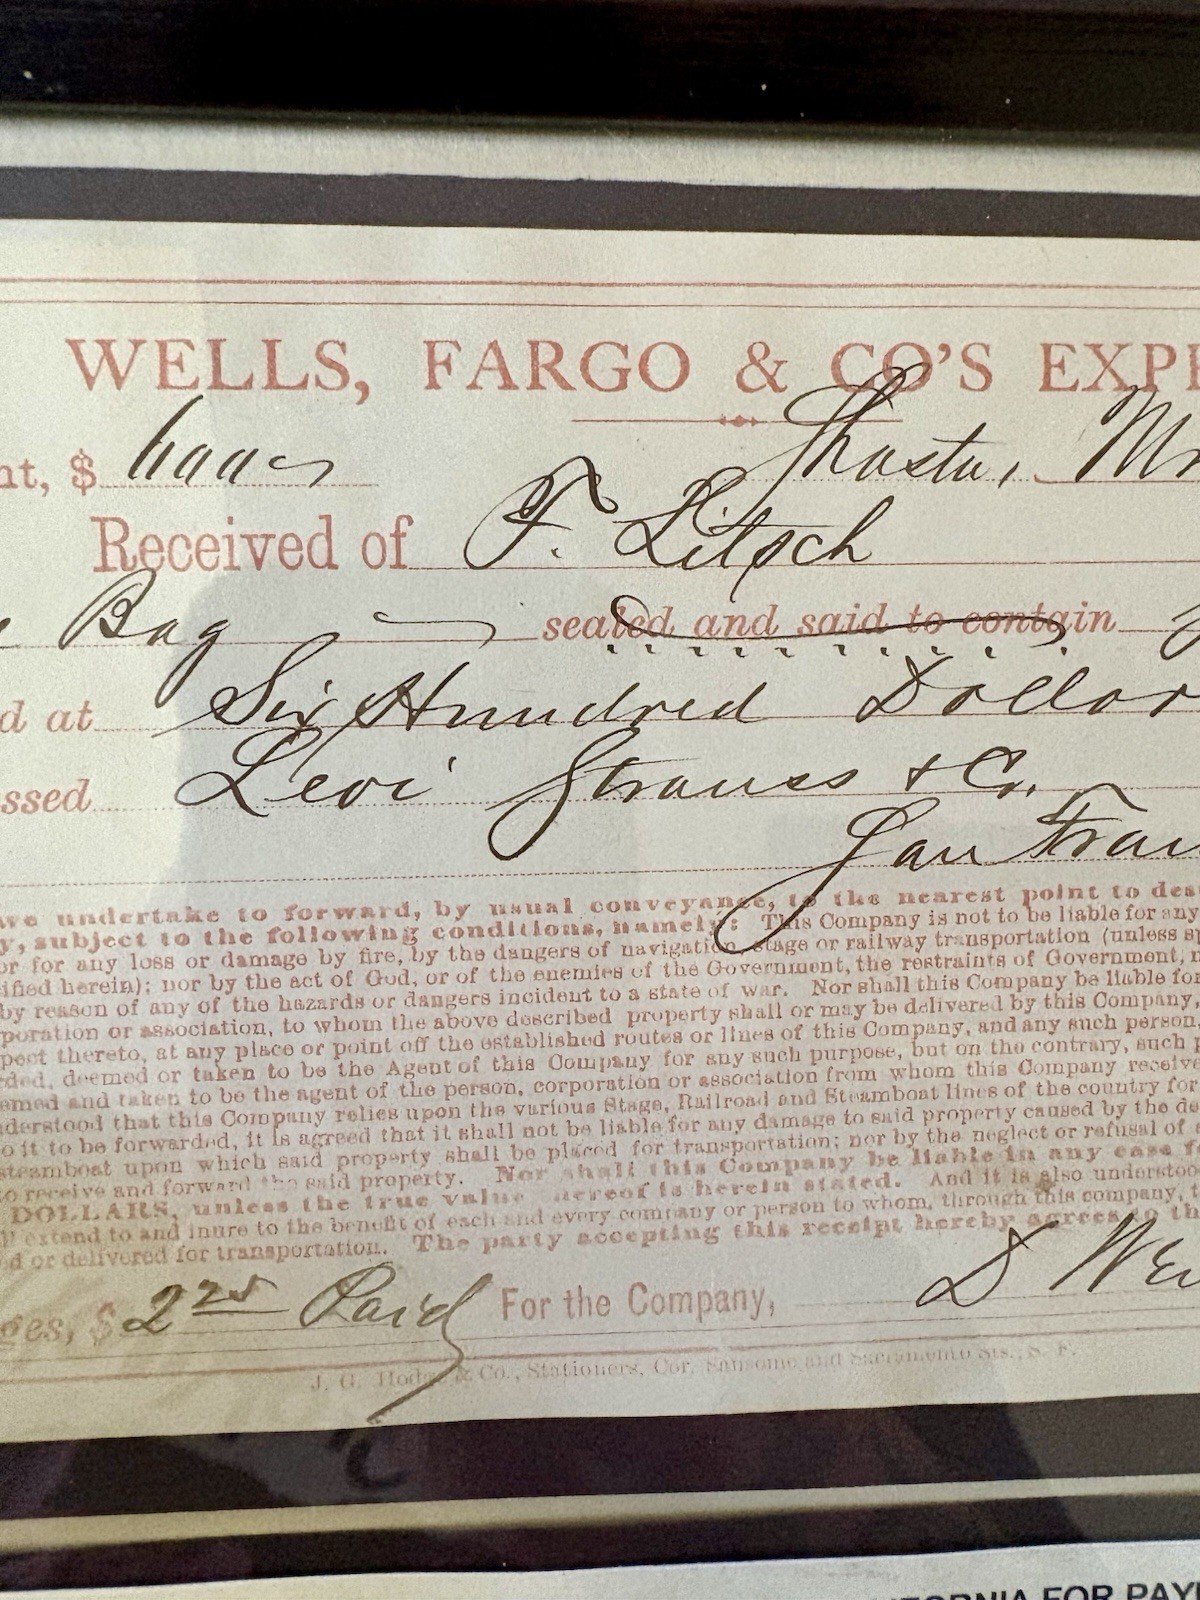 WELLS, FARGO & CO'S EXPR
nt, $ 600 Shasta, M
Received of F. Litsch
Bag sealed and said to contain
d at Six Hundred Dollar
ssed Levi Strauss + Co.
San Fran
we undertake to forward, by usual conveyance, to the nearest point to des
y, subject to the following conditions, namely: This Company is not to be liable for any
or for any loss or damage by fire, by the dangers of navigation, stage or railway transportation (unless sp
ified herein); nor by the act of God, or of the enemies of the Government, the restraints of Government, m
by reason of any of the hazards or dangers incident to a state of war. Nor shall this Company be liable for
poration or association, to whom the above described property shall or may be delivered by this Company,
pect thereto, at any place or point off the established routes or lines of this Company, and any such person,
rded, deemed or taken to be the Agent of this Company for any such purpose, but on the contrary, such p
emed and taken to be the agent of the person, corporation or association from whom this Company receive
derstood that this Company relies upon the various Stage, Railroad and Steamboat lines of the country for
o it to be forwarded, it is agreed that it shall not be liable for any damage to said property caused by the de
steamboat upon which said property shall be placed for transportation; nor by the neglect or refusal of
to receive and forward the said property. Nor shall this Company be liable in any case f
DOLLARS, unless the true value hereof is herein stated. And it is also understoo
ll extend to and inure to the benefit of each and every company or person to whom, through this company, t
d or delivered for transportation. The party accepting this receipt hereby agrees to th
ges, $ 2 25 Paid For the Company, D We
J. G. Hodge & Co., Stationers, Cor. Sansome and Sacramento Sts., S. F.
FORNIA FOR PAY